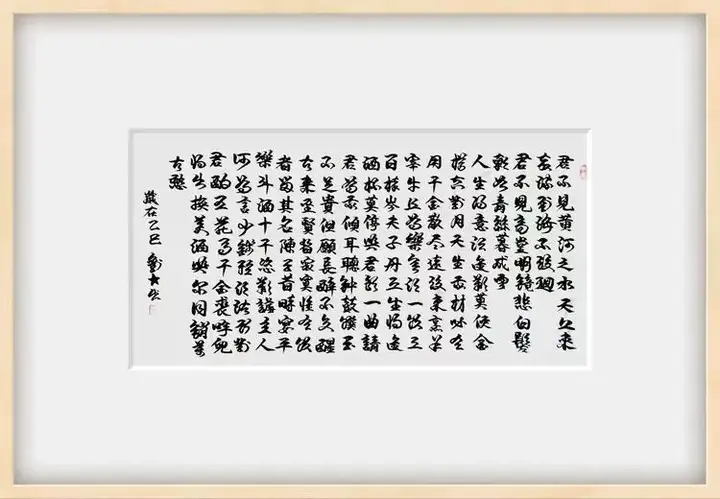 君不見黄河之水天上來
奔流到海不復迴
君不見高堂明鏡悲白髮
朝如青絲暮成雪
人生得意須盡歡莫使金
樽空對月天生我材必有
用千金散盡還復來烹羊
宰牛且為樂會須一飲三
百杯岑夫子丹丘生將進
酒杯莫停與君歌一曲請
君為我傾耳聽鐘鼓饌玉
不足貴但願長醉不久醒
古來聖賢皆寂寞惟有飲
者留其名陳王昔時宴平
樂斗酒十千恣歡謔主人
何為言少錢徑須沽取對
君酌五花馬千金裘呼兒
將出換美酒與爾同銷萬
古愁
歲在乙巳